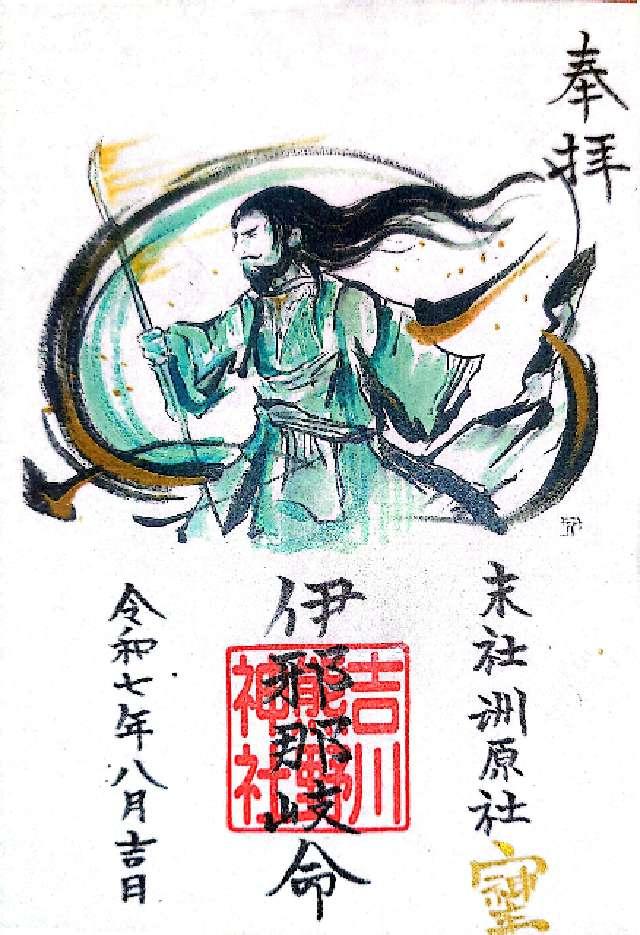 奉拝
末社 洲原社
伊耶那岐命
吉川
熊野
神社
令和七年八月吉日